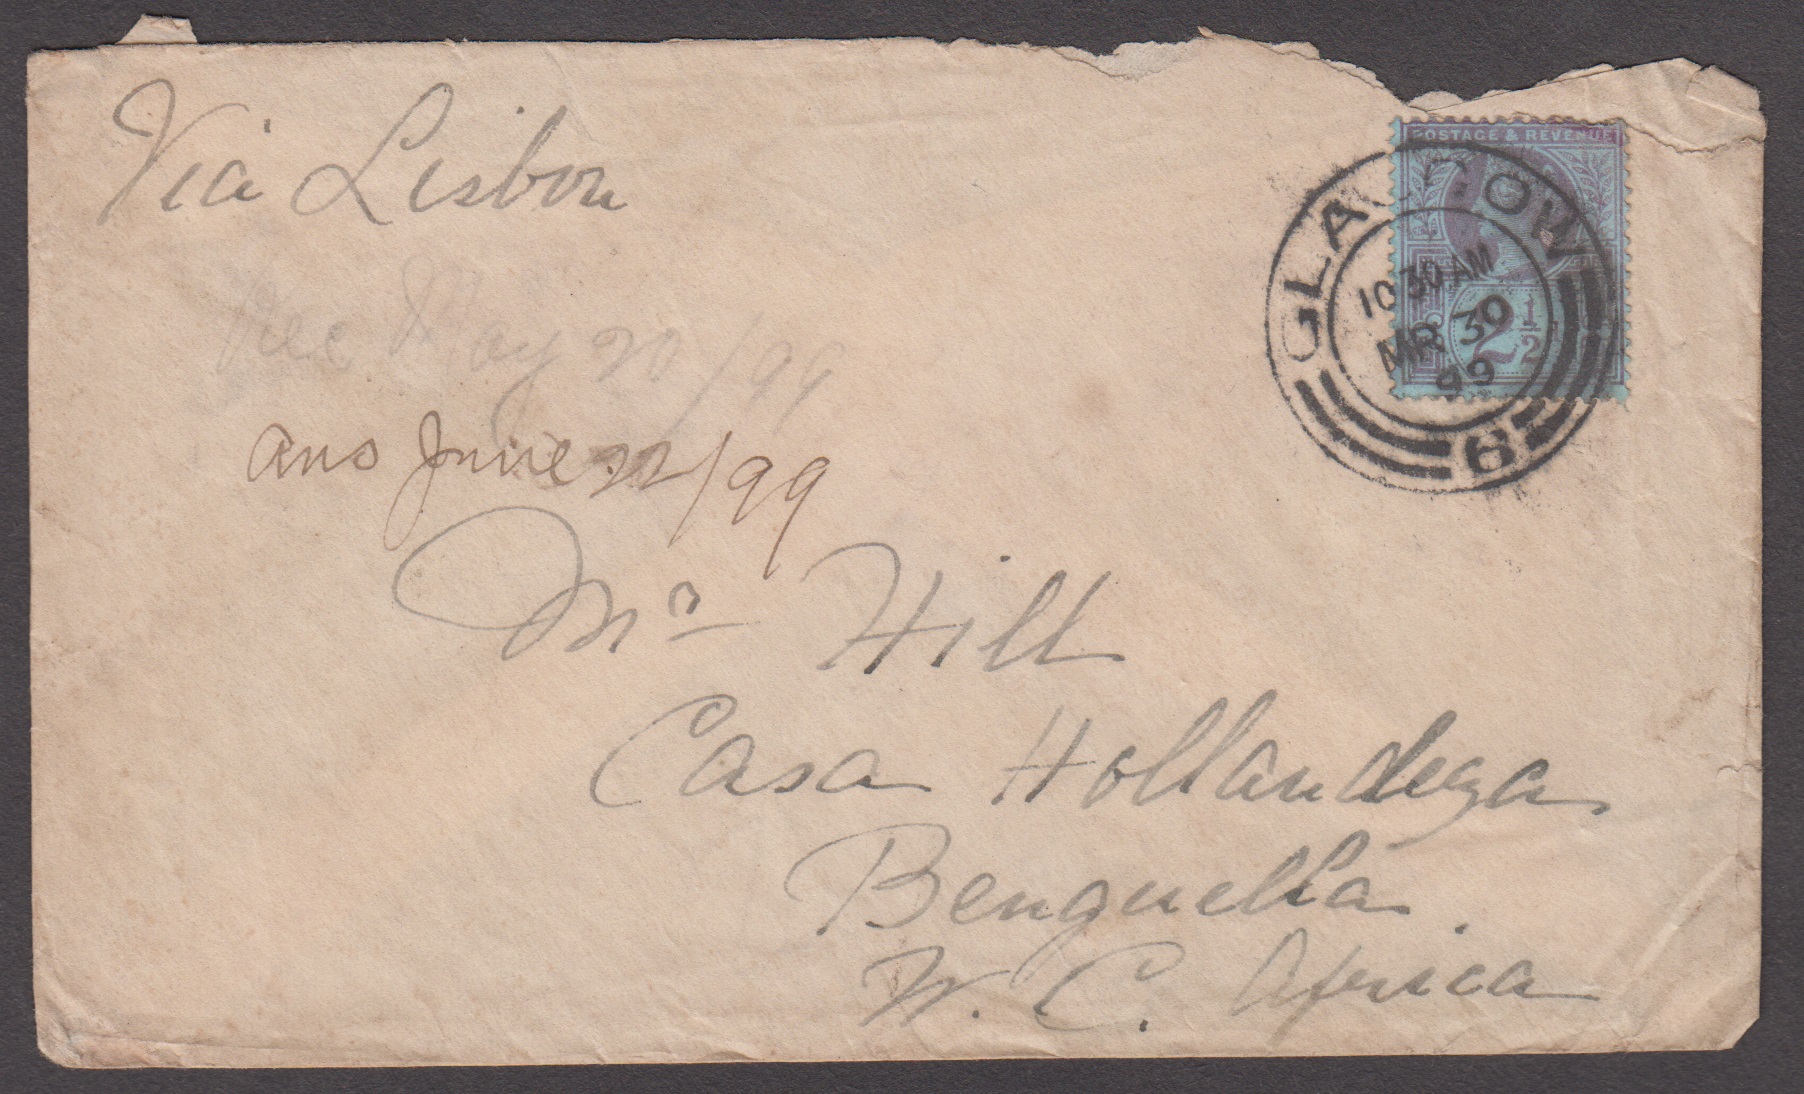 Via Lisbon
POSTAGE & REVENUE
GLASGOW
10 30 AM
MR 30
99
6
2½
Rec May 20/99
ans June 22/99
Mr Hill
Casa Hollandeza
Benguella
W. C. Africa